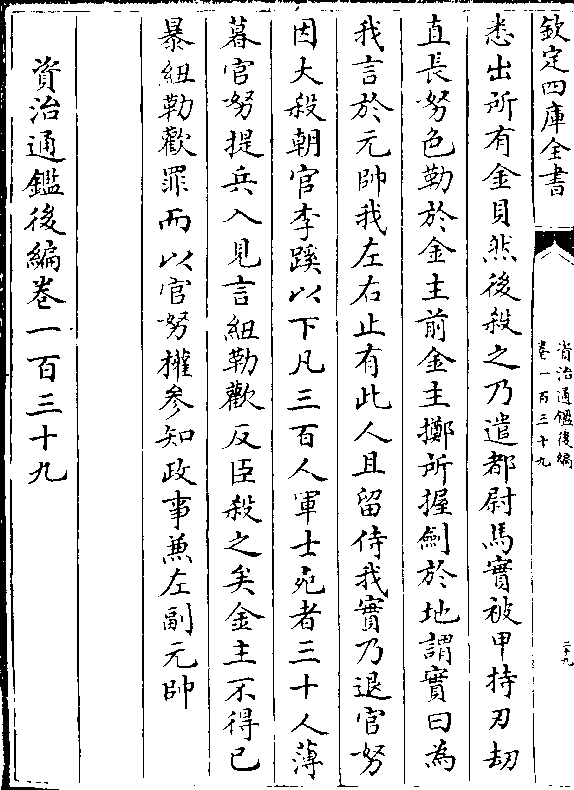 欽定四庫全書
資治通鑑後編
卷一百三十九
二十九
悉出所有金貝然後殺之乃遣都尉馬實被甲持刃刧
直長努色勒於金主前金主擲所握劍於地謂實曰為
我言於元帥我左右止有此人且留侍我實乃退官努
因大殺朝官李蹊以下凡三百人軍士死者三十人薄
暮官努提兵入見言紐勒歡反臣殺之矣金主不得已
暴紐勒歡罪而以官努權參知政事兼左副元帥
資治通鑑後編卷一百三十九